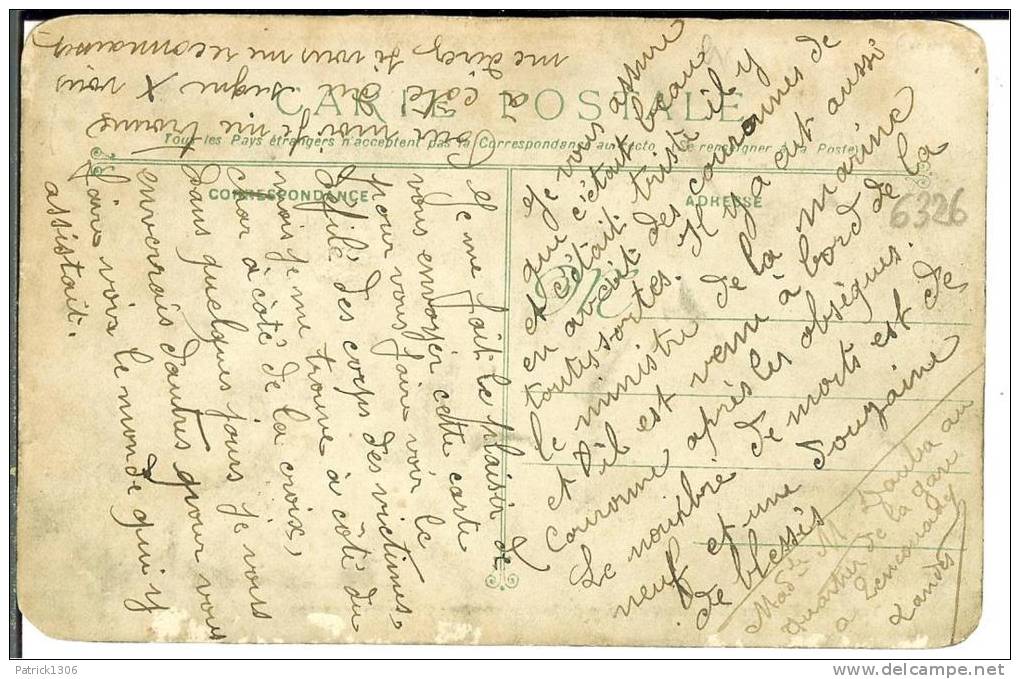 CARTE POSTALE
Tous les Pays étrangers n'acceptent pas la Correspondance au recto (Se renseigner à la Poste)
CORRESPONDANCE
ADRESSE
6326
Je me fait le plaisir de
vous envoyer cette carte
pour vous faire voir le
défilé des corps des victimes.
mois je me trouve à côté du
char à côté de la croix,
dans quelques jours je vous
enverrais d'autres pour vous
faire voire le monde qui y
assistait.
Pour moi je me trouve
à côté du signe X vous
me direz si vous me reconnaissez
Je vous assure
que c'était beau
et c'était triste il y
en avait des couronnes de
toutes sortes. Il y a eut aussi
le ministre de la marine
et il est venu à bord de la
Couronne après les obsèques.
Le nombre de morts est de
neuf et une douzaine
de blessés
Mad M Dauba au
quartier de la gare
a Lencouacq
Landes
Patrick1306
www.delcampe.net